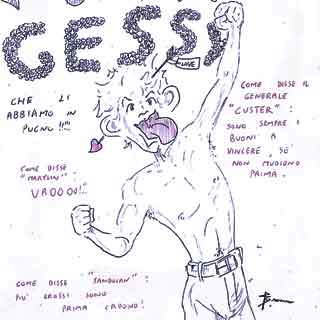 GESSI
LOVE
CHE LI
ABBIAMO IN
PUGNO!!"
COME DISSE IL
GENERALE
"CUSTER":
SONO SEMPRE I
BUONI A
VINCERE, SE
NON MUOIONO
PRIMA.
COME DISSE
"MARTIN":
COME DISSE "SANDOKAN":
PIU' GROSSI SONO
PRIMA CADONO!